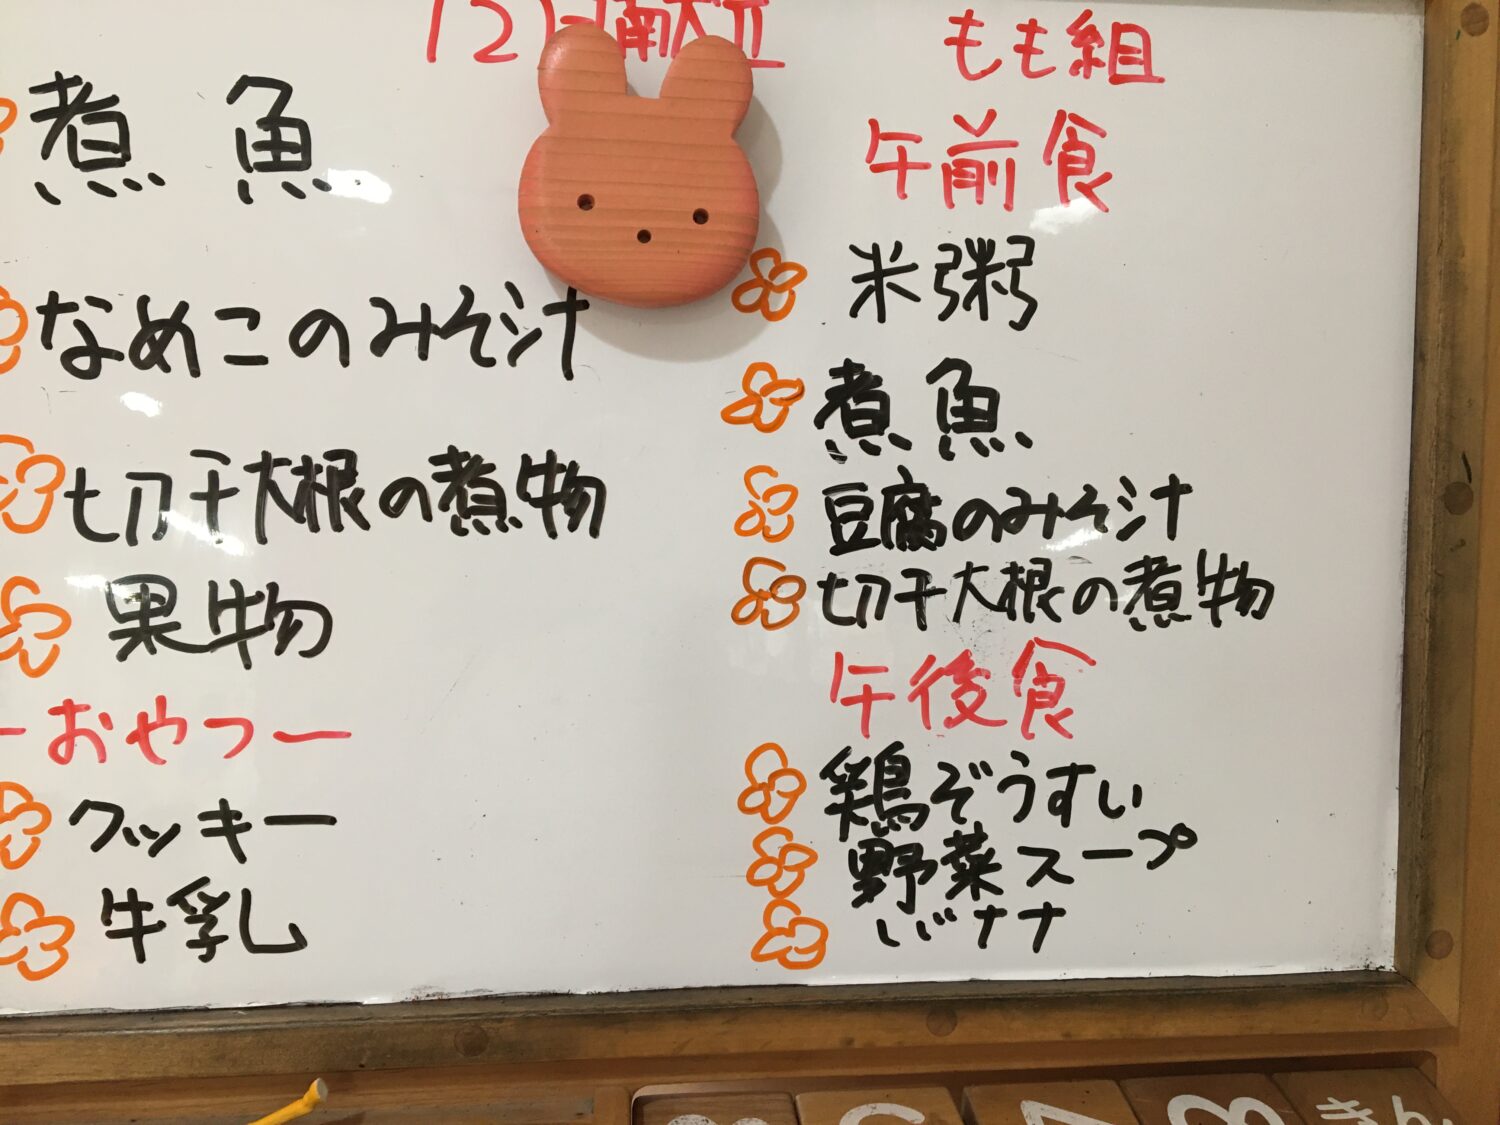 12日献立
煮魚
なめこのみそ汁
切干大根の煮物
果物
ーおやつー
クッキー
牛乳
もも組
午前食
米粥
煮魚
豆腐のみそ汁
切干大根の煮物
午後食
鶏ぞうすい
野菜スープ
バナナ